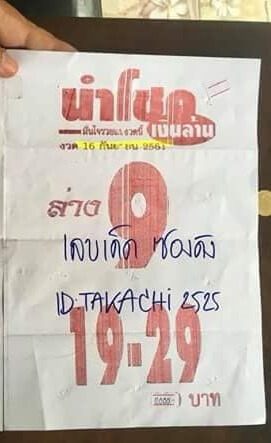 นำโชค
มั่นใจรวยแน่งวดนี้ เงินล้าน
งวด 16 กันยายน 2561
ล่าง 9
เลขเด็ด ซองดัง
ID:TAKACHi 2525
19=29
บาท